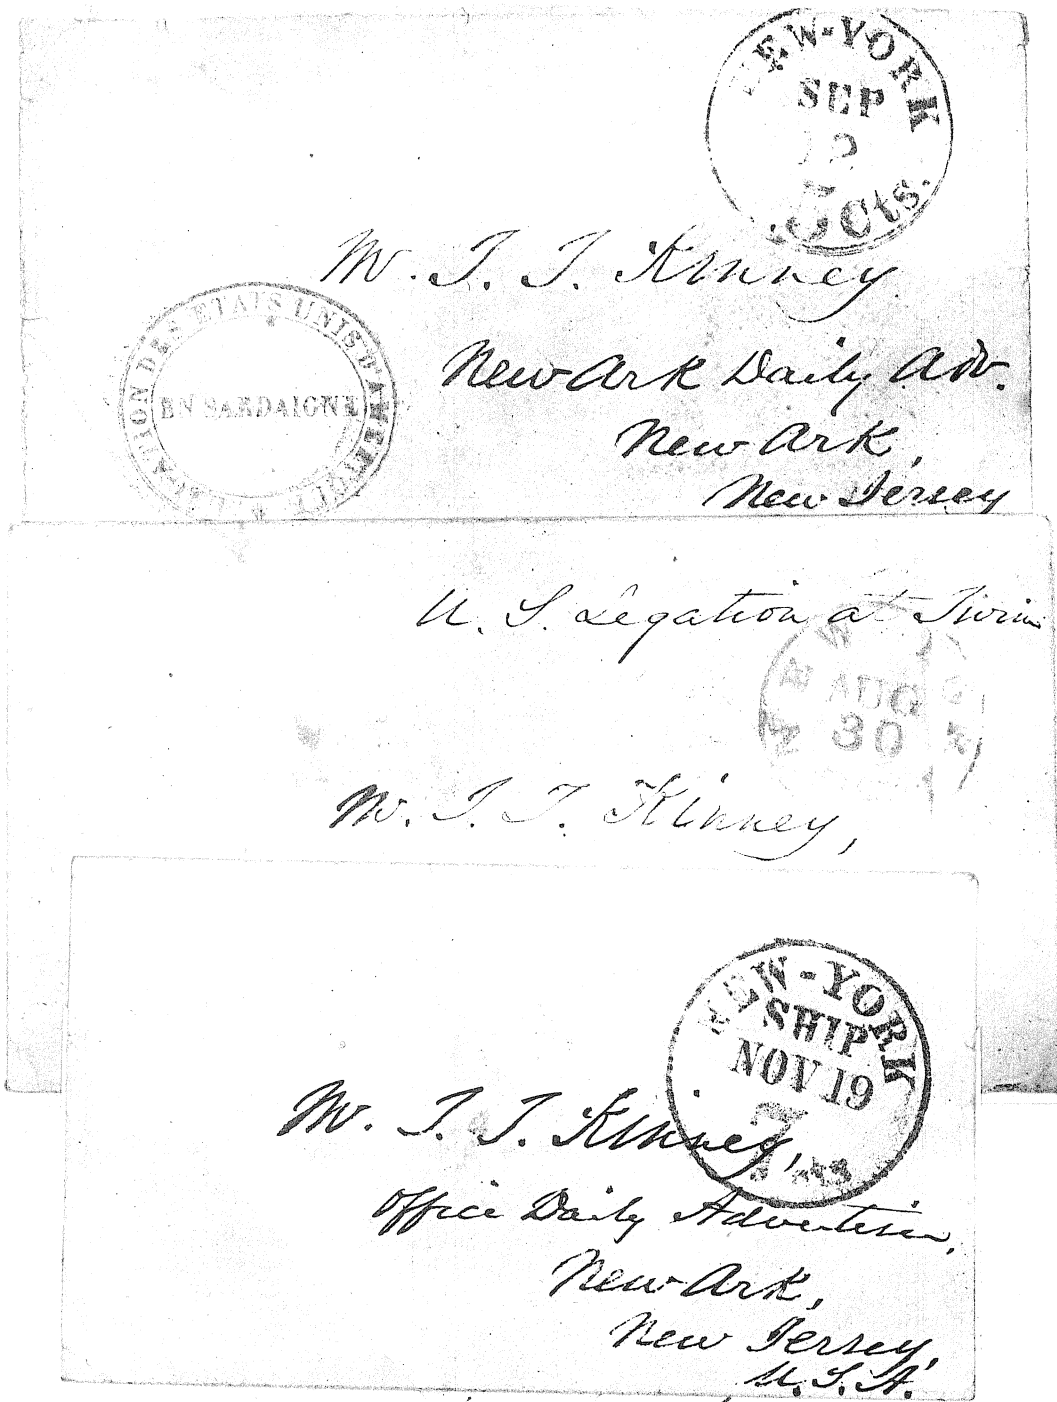 NEW-YORK
SEP
5 Cts.
M. T. T. Kinney
LEGATION DES ETATS UNIS D'AMERIQUE
EN SARDAIGNE
New Ark Daily Adv.
New Ark,
New Jersey
U. S. Legation at Turin
NEW YORK
AUG
30
M. T. T. Kinney,
NEW-YORK
SHIP
NOV 19
7
M. T. T. Kinney,
Office Daily Advertiser,
New Ark,
New Jersey,
U. S. A.